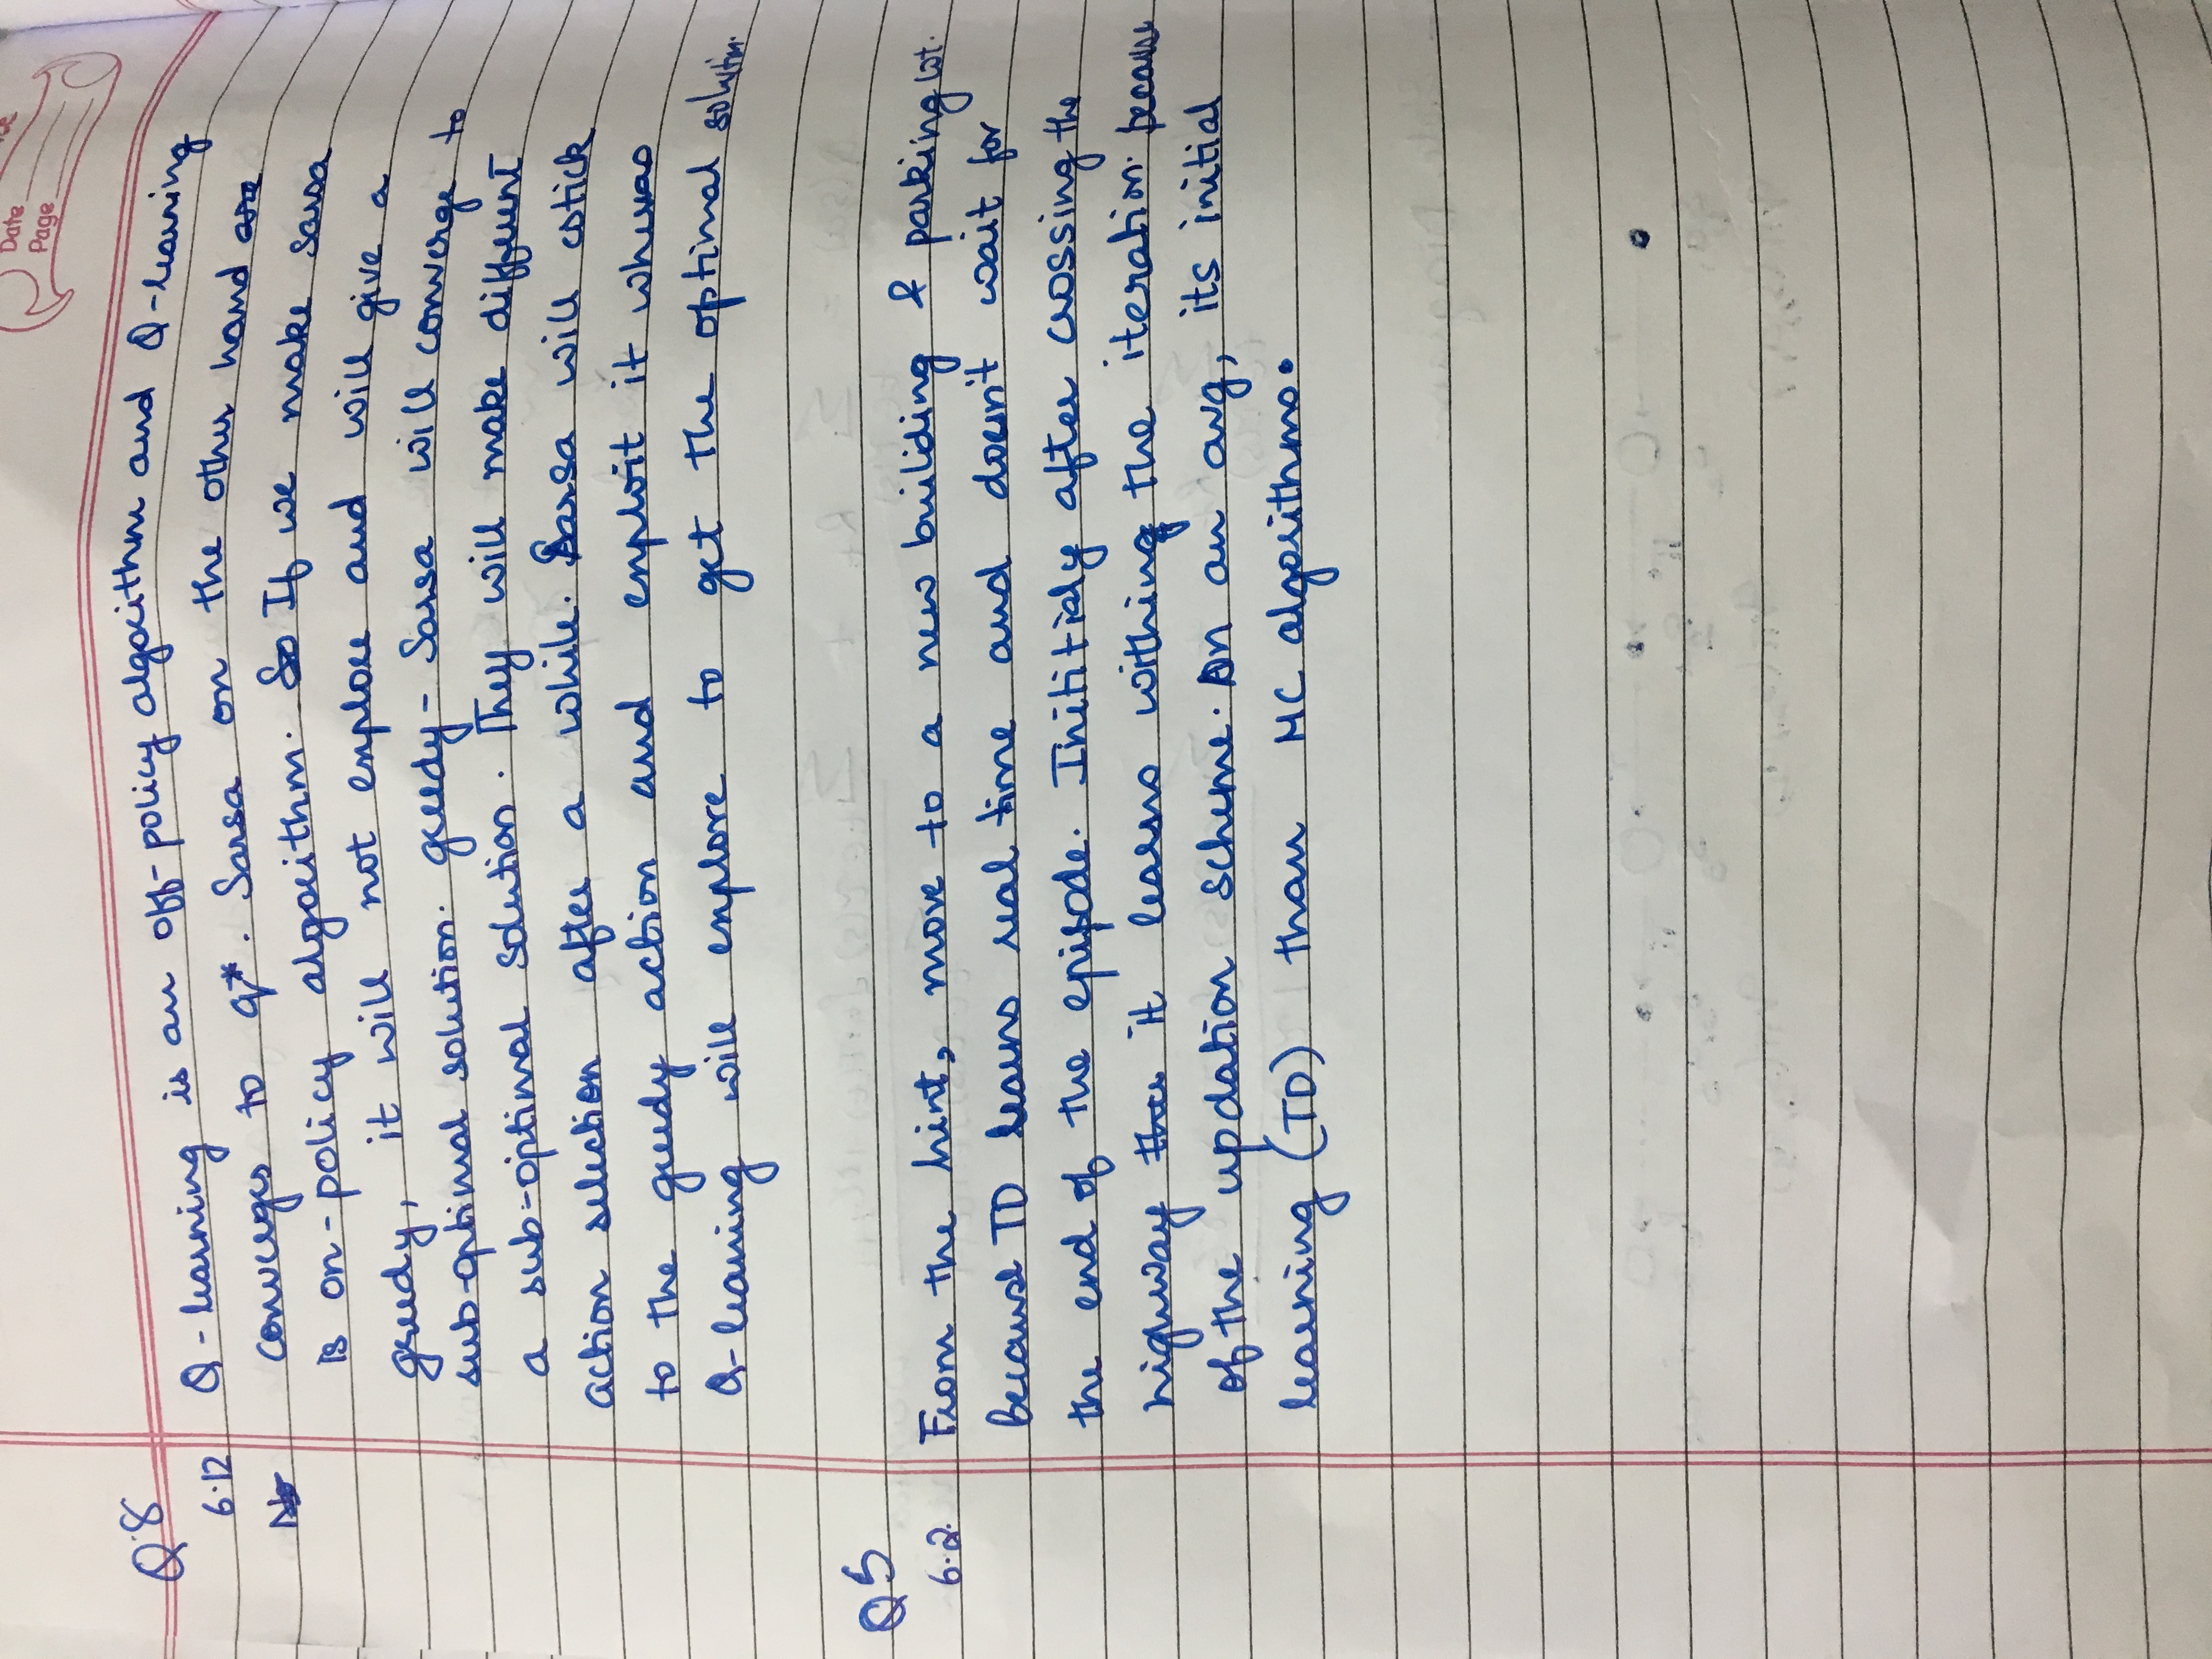 Date
Page
Q8
6.12 Q-learning is an off-policy algorithm and Q-learning
converges to q*. Sarsa on the other hand are
is on-policy algorithm. So If we make sarsa
greedy, it will not explore and will give a
sub-optimal solution. greedy-Sarsa will converge to
a sub-optimal solution. They will make different
action selection after a while. Sarsa will stick
to the greedy action and exploit it whereas
Q-learning will explore to get the optimal solution.
Q5
6.2. From the hint, move to a new building & parking lot.
Because TD learns real time and doesn't wait for
the end of the episode. Inititialy after crossing the
highway it learns withing the iteration. because
of the updation scheme. On an avg, its initial
learning (TD) than MC algorithms.